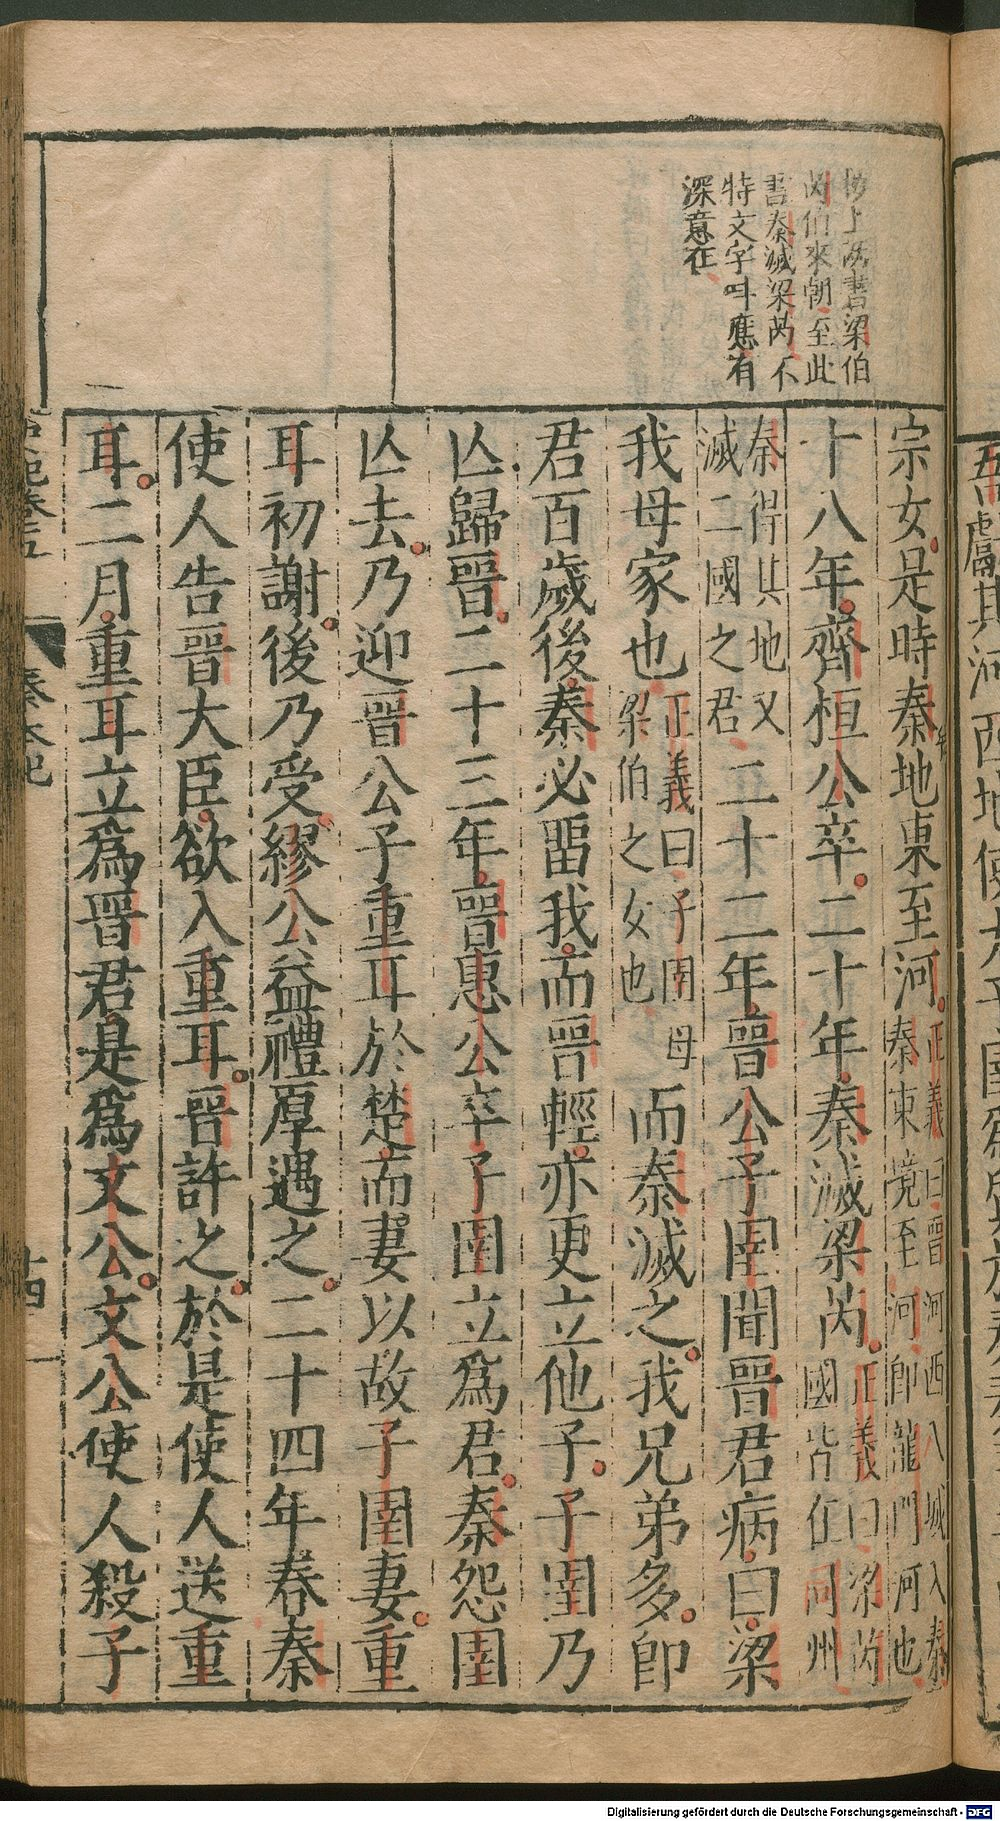 上兩書梁伯
芮伯來朝至此
書秦滅梁芮不
特文字呌應有
深意在
宗女是時秦地東至河正義曰晉河西八城入秦秦東境至河卽龍門河也
十八年齊桓公卒二十年秦滅梁芮正義曰梁芮國皆在同州
秦得其地又滅二國之君二十二年晉公子圉聞晉君病曰梁
我母家也正義曰子圉母梁伯之女也而秦滅之我兄弟多卽
君百歲後秦必畱我而晉輕亦更立他子子圉乃
亾歸晉二十三年晉惠公卒子圉立爲君秦怨圉
亾去乃迎晉公子重耳於楚而妻以故子圉妻重
耳初謝後乃受繆公益禮厚遇之二十四年春秦
使人告晉大臣欲入重耳晉許之於是使人送重
耳二月重耳立爲晉君是爲文公文公使人殺子
秦本紀
十四
Digitalisierung gefördert durch die Deutsche Forschungsgemeinschaft - DFG